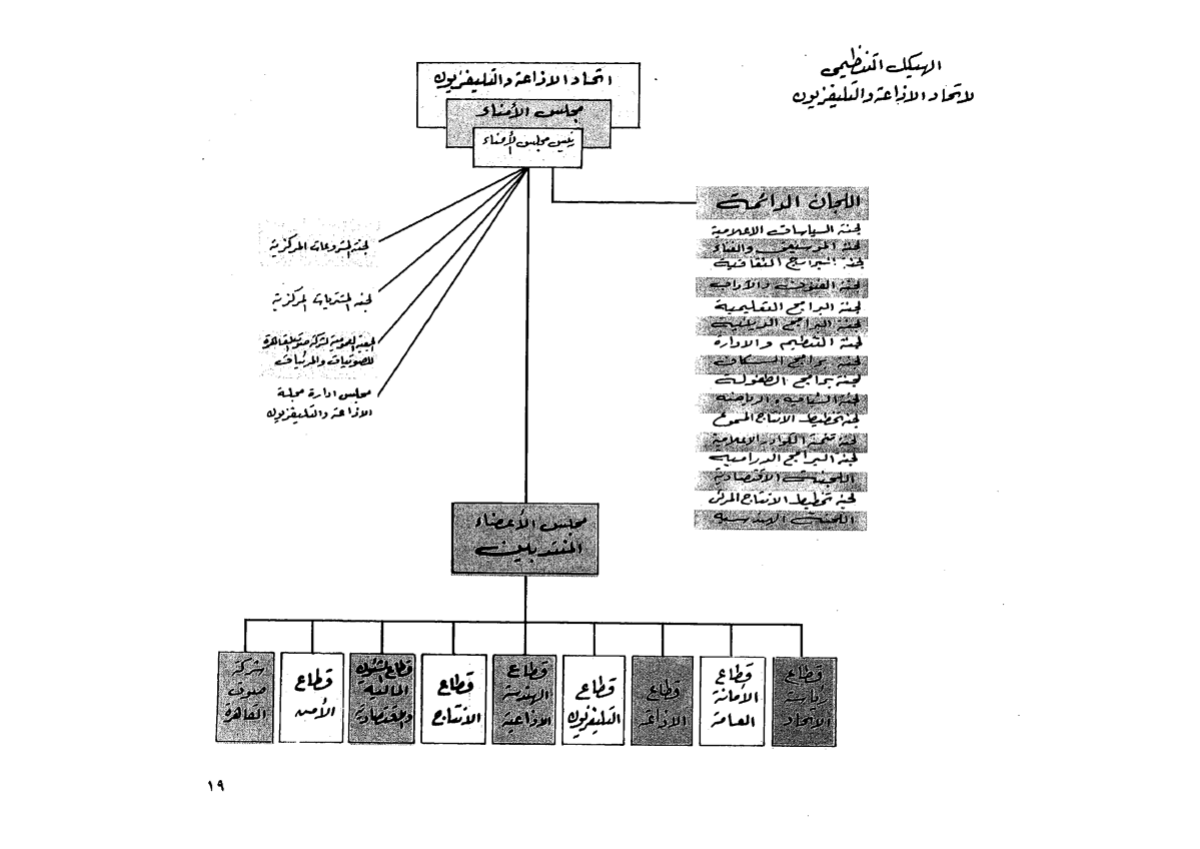 الهيكل التنظيمى
لاتحاد الاذاعة والتليفزيون
اتحاد الاذاعة والتليفزيون
مجلس الأمناء
رئيس مجلس الأمناء
اللجان الدائمة
لجنة السياسات الاعلامية
لجنة الموسيقى والغناء
لجنة البرامج الثقافية
لجنة الفنون والآداب
لجنة البرامج التعليمية
لجنة البرامج الدينية
لجنة التنظيم والادارة
لجنة برامج السكان
لجنة برامج الطفولة
لجنة الشبابية والرياضة
لجنة تخطيط الانتاج المسموع
لجنة تنمية الكوادر الاعلامية
لجنة البرامج الدرامية
اللجنة الاقتصادية
لجنة تخطيط الانتاج المرئى
اللجنة الهندسية
لجنة المشروعات المركزية
لجنة المشتريات المركزية
الجمعية العمومية لشركة صوت القاهرة
للصوتيات والمرئيات
مجلس ادارة مجلة
الاذاعة والتليفزيون
مجلس الأعضاء
المنتدبين
قطاع
رئاسة
الاتحاد
قطاع
الأمانة
العامة
قطاع
الاذاعة
قطاع
التليفزيون
قطاع
الهندسة
الاذاعية
قطاع
الانتاج
قطاع الشئون
المالية
والاقتصادية
قطاع
الأمن
شركة
صوت
القاهرة
١٩